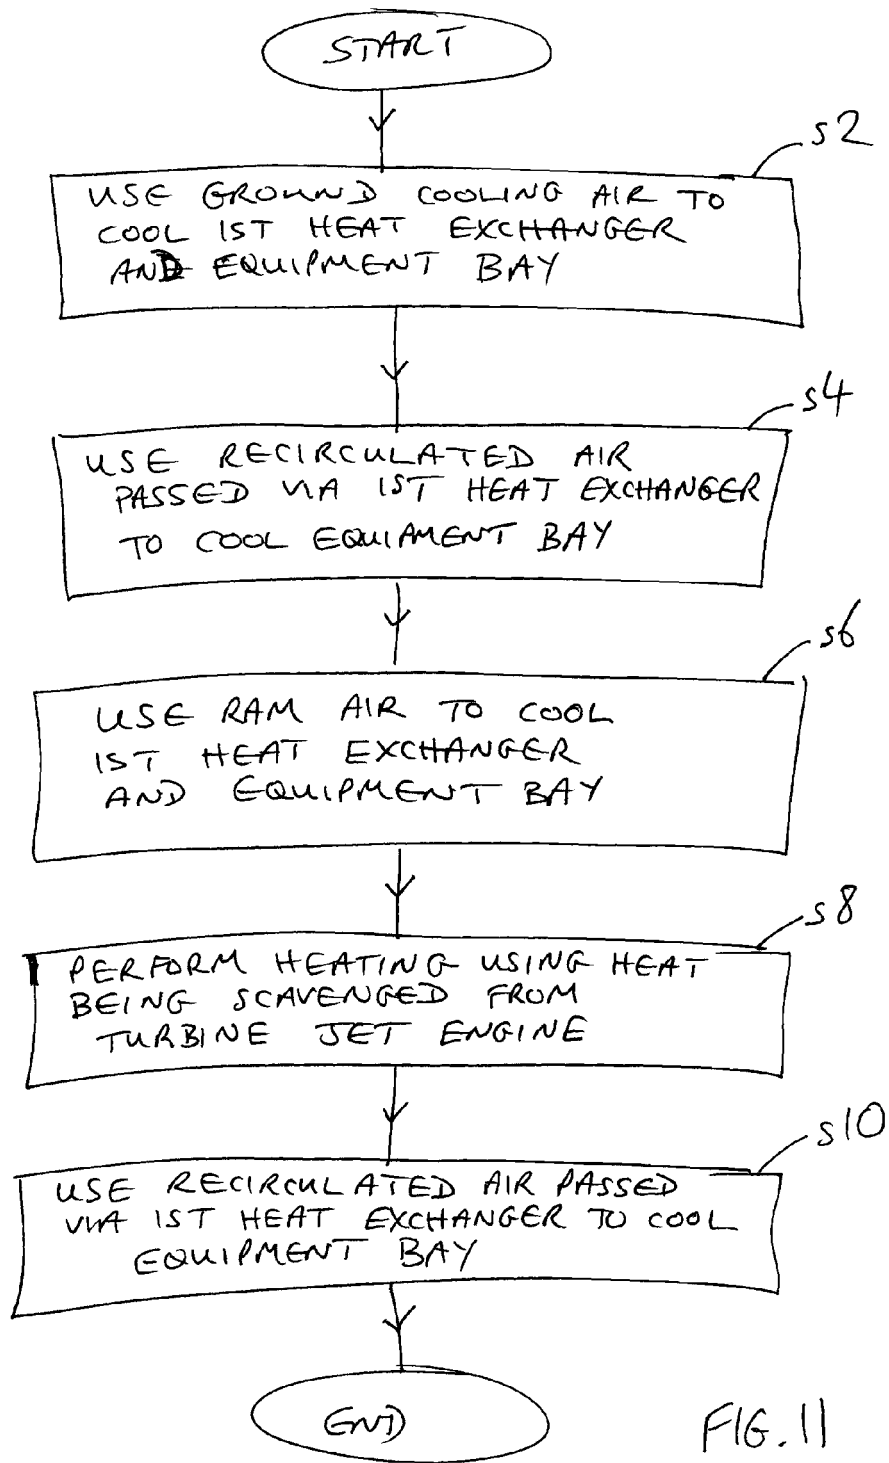 START
s2
USE GROUND COOLING AIR TO
COOL 1ST HEAT EXCHANGER
AND EQUIPMENT BAY
s4
USE RECIRCULATED AIR
PASSED VIA 1ST HEAT EXCHANGER
TO COOL EQUIAMENT BAY
s6
USE RAM AIR TO COOL
1ST HEAT EXCHANGER
AND EQUIPMENT BAY
s8
PERFORM HEATING USING HEAT
BEING SCAVENGED FROM
TURBINE JET ENGINE
s10
USE RECIRCULATED AIR PASSED
VIA 1ST HEAT EXCHANGER TO COOL
EQUIPMENT BAY
END
FIG. 11